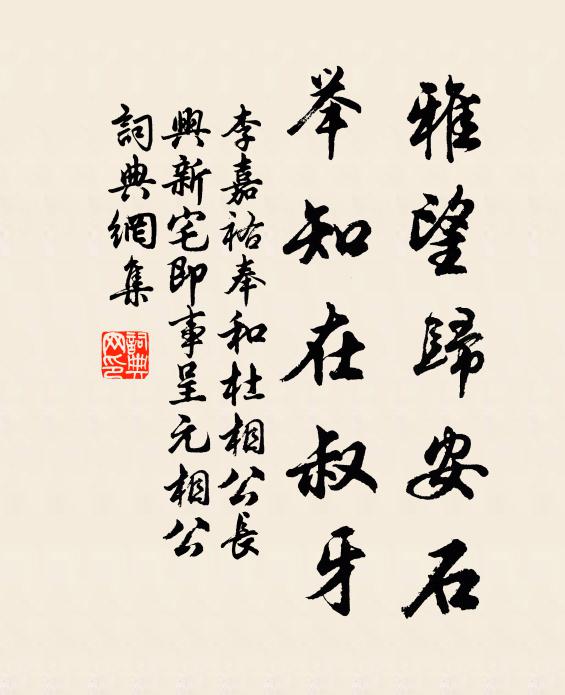 雅望歸安石
举知在叔牙
李嘉祐奉和杜相公長
興新宅即事呈元相公
詞典網集
詞典
网印